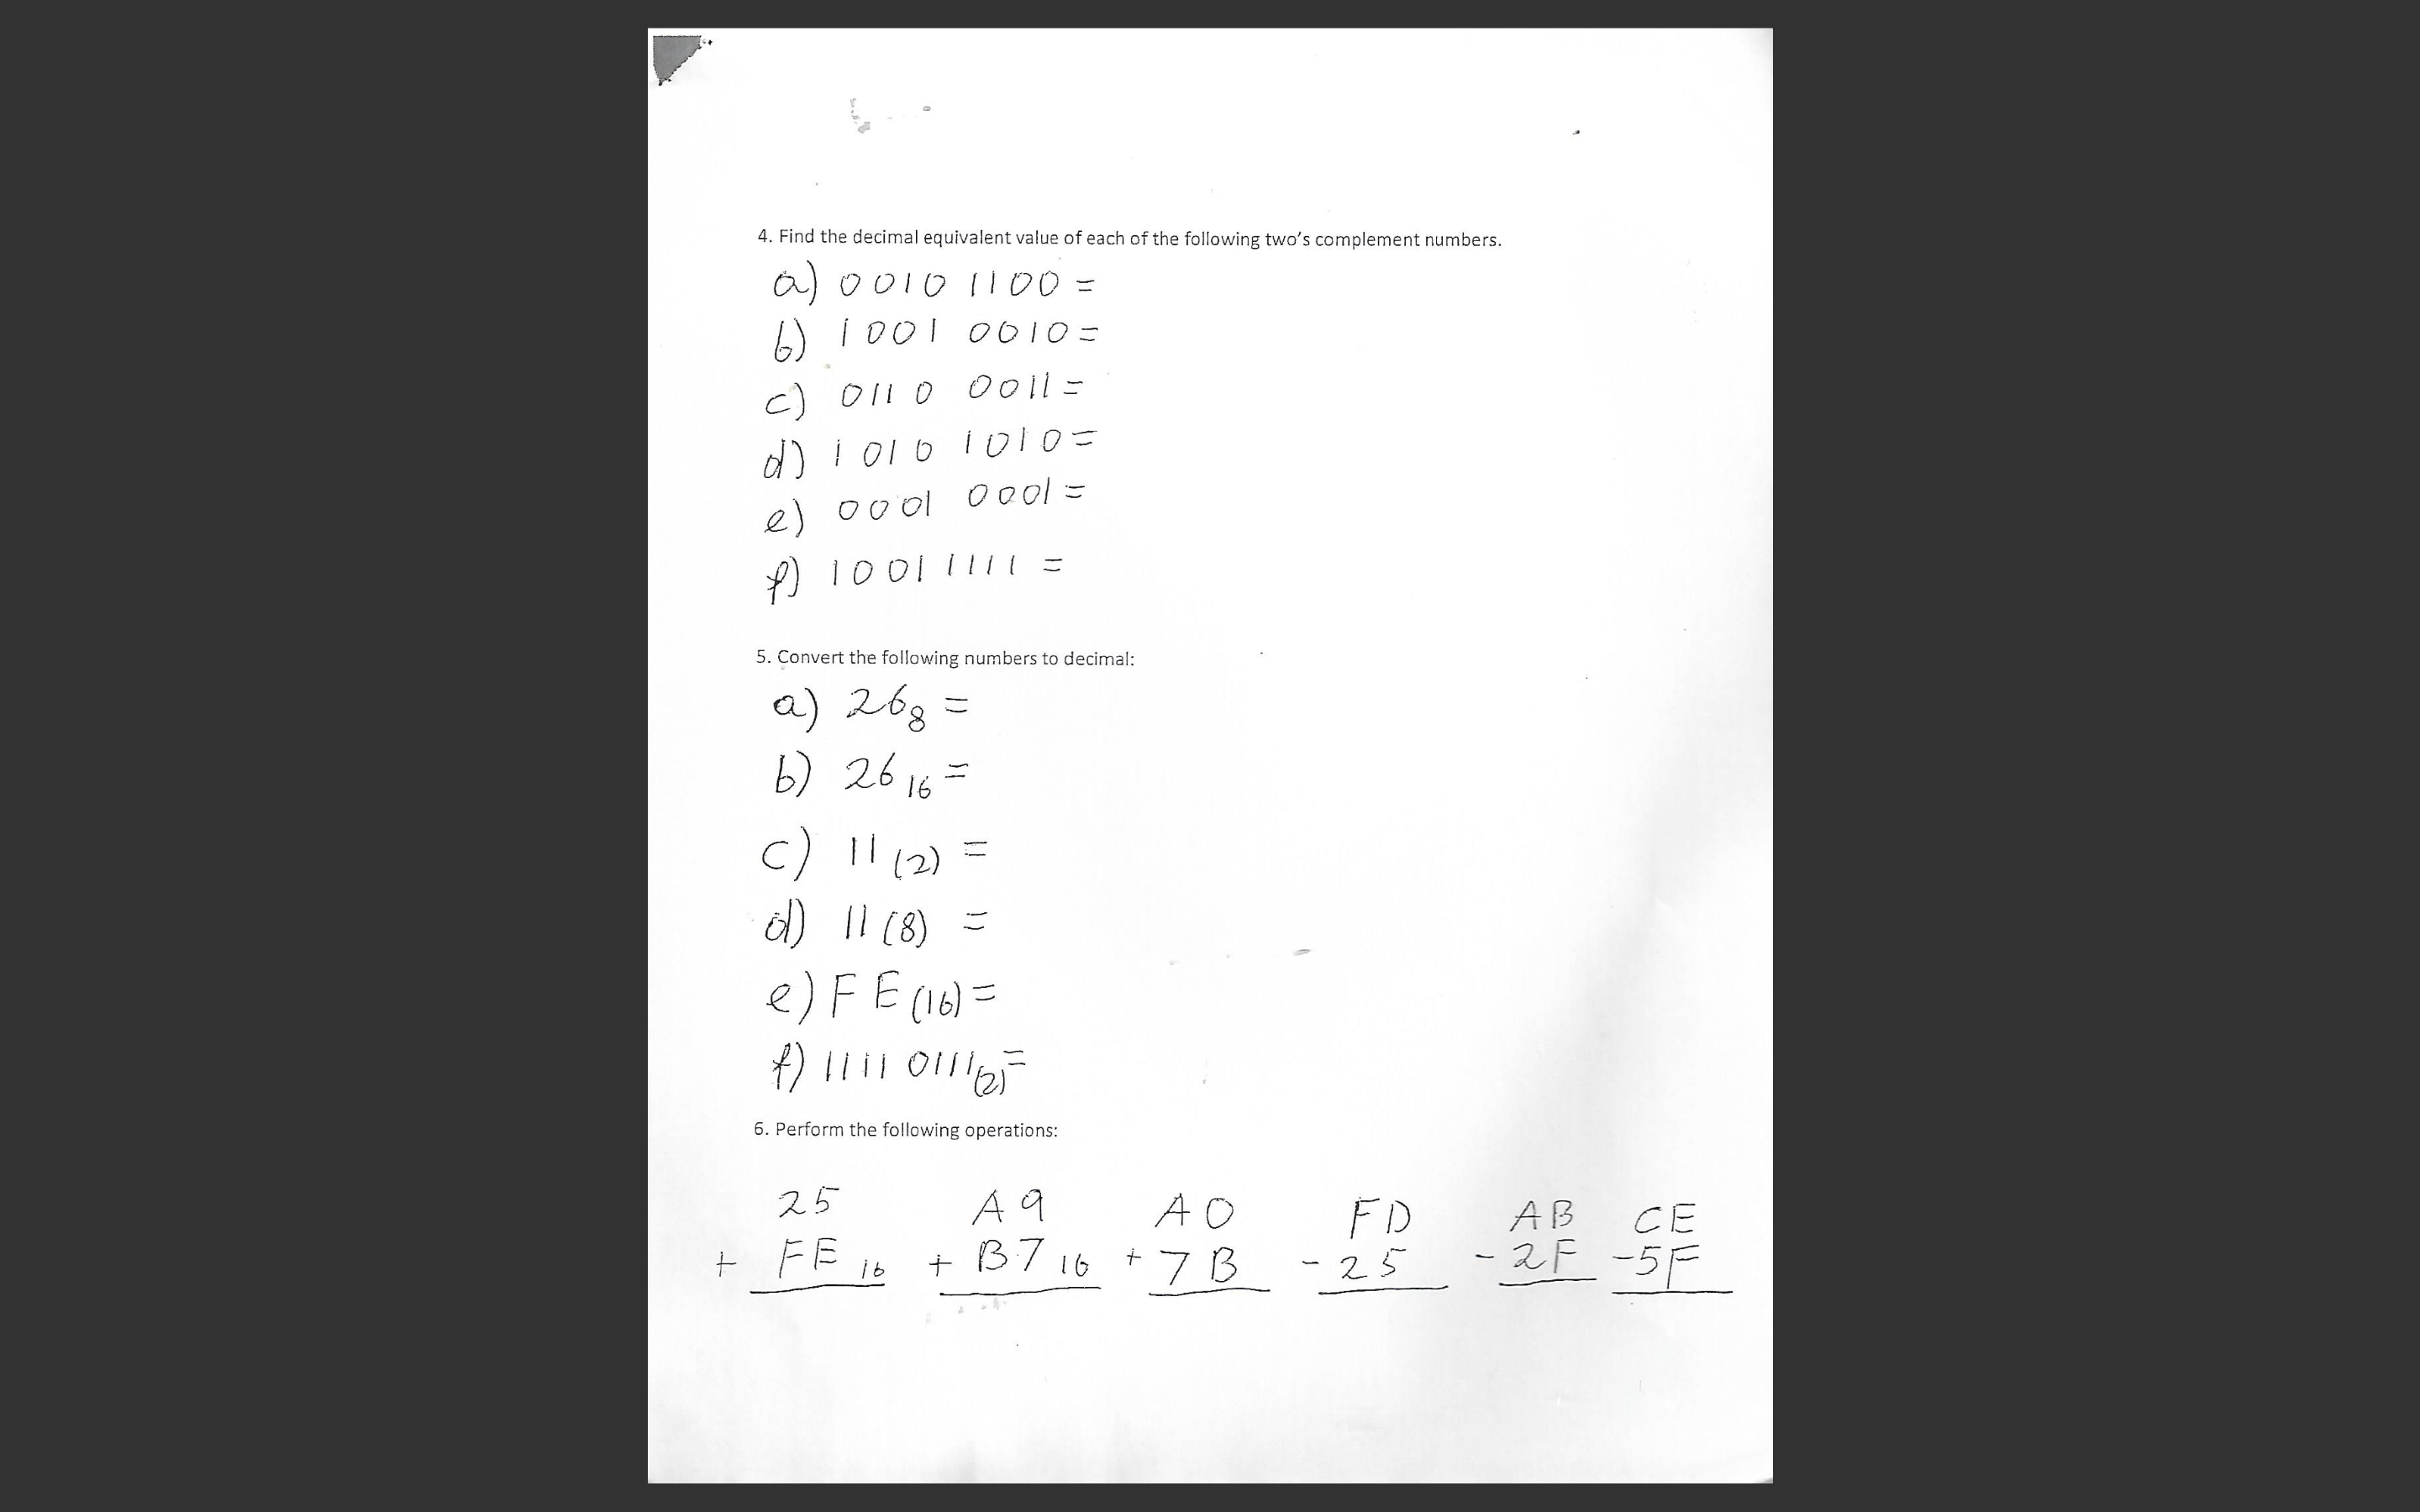 4. Find the decimal equivalent value of each of the following two's complement numbers.
a) 0010 1100 =
b) 1001 0010 =
c) 0110 0011 =
d) 1010 1010 =
e) 0001 0001 =
f) 1001 1111 =
5. Convert the following numbers to decimal:
a) 26 8 =
b) 26 16 =
c) 11 (2) =
d) 11 (8) =
e) FE (16) =
f) 1111 0111 (2) =
6. Perform the following operations:
25 A9 A0 FD AB CE
+ FE 16 + B7 16 + 7B - 25 - 2F - 5F